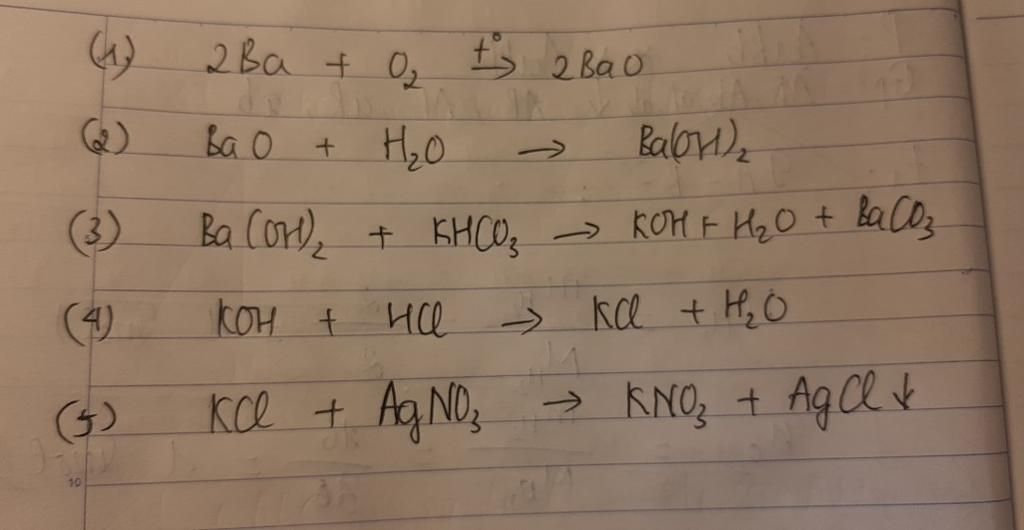 (1) 2Ba + O₂ t°→ 2BaO
(2) BaO + H₂O → Ba(OH)₂
(3) Ba(OH)₂ + KHCO₃ → KOH + H₂O + BaCO₃
(4) KOH + HCl → KCl + H₂O
(5) KCl + AgNO₃ → KNO₃ + AgCl↓
10